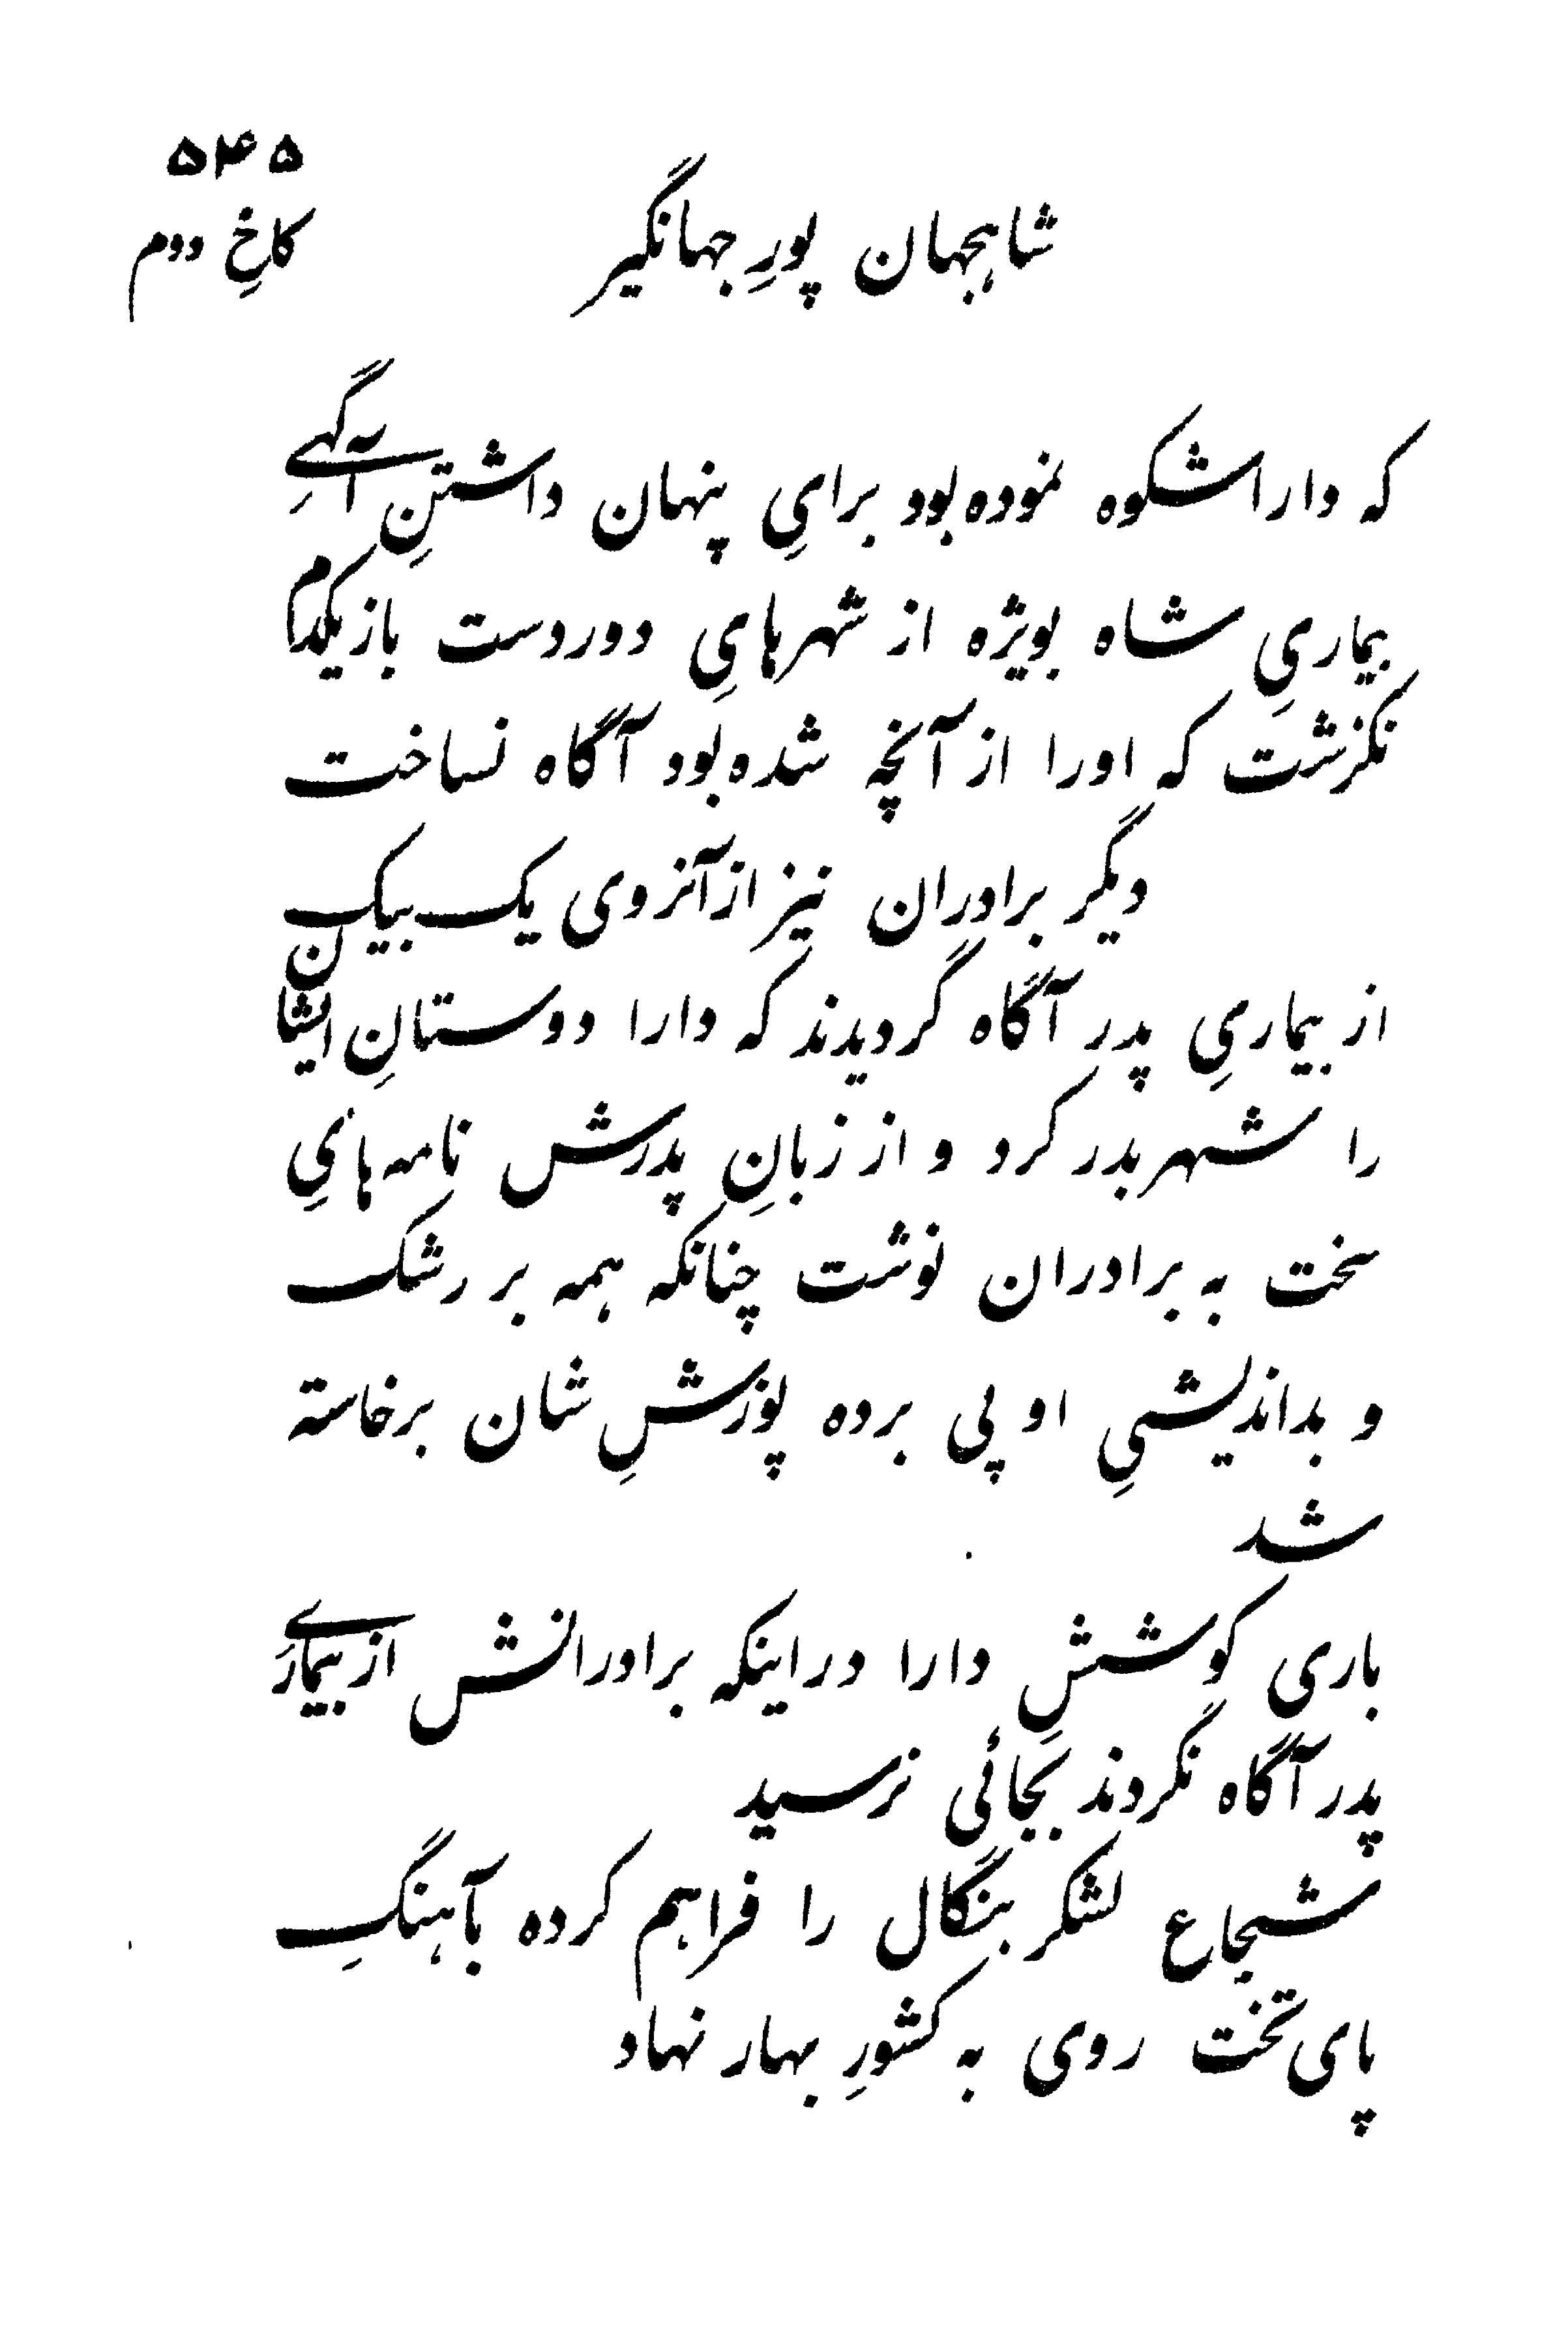 ۵۴۵
کاخِ دوم
شاهجهان پورِ جهانگیر
که داراشکوه نموده بود برایِ پنهان داشتنِ آگهیِ
بیماریِ شاه بویژه از شهرهایِ دوردست باز یکدم
نگزشت که اورا از آنچه شده بود آگاه نساخت
دیگر برادران نیز ازآنروی یک بیک
از بیماریِ پدر آگاه گردیدند که دارا دوستانِ ایشان
را شهر بدر کرد و از زبانِ پدرش نامه هایِ
سخت به برادران نوشت چنانکه همه بر رشک
و بداندیشیِ او پی برده پوزشِ شان برخاسته
شد
باری کوششِ دارا دراینکه برادرانش از بیماریِ
پدر آگاه نگردند بجائی نرسید
شجاع لشکر بنگال را فراهم کرده بآهنگِ
پای تخت روی به کشورِ بهار نهاد